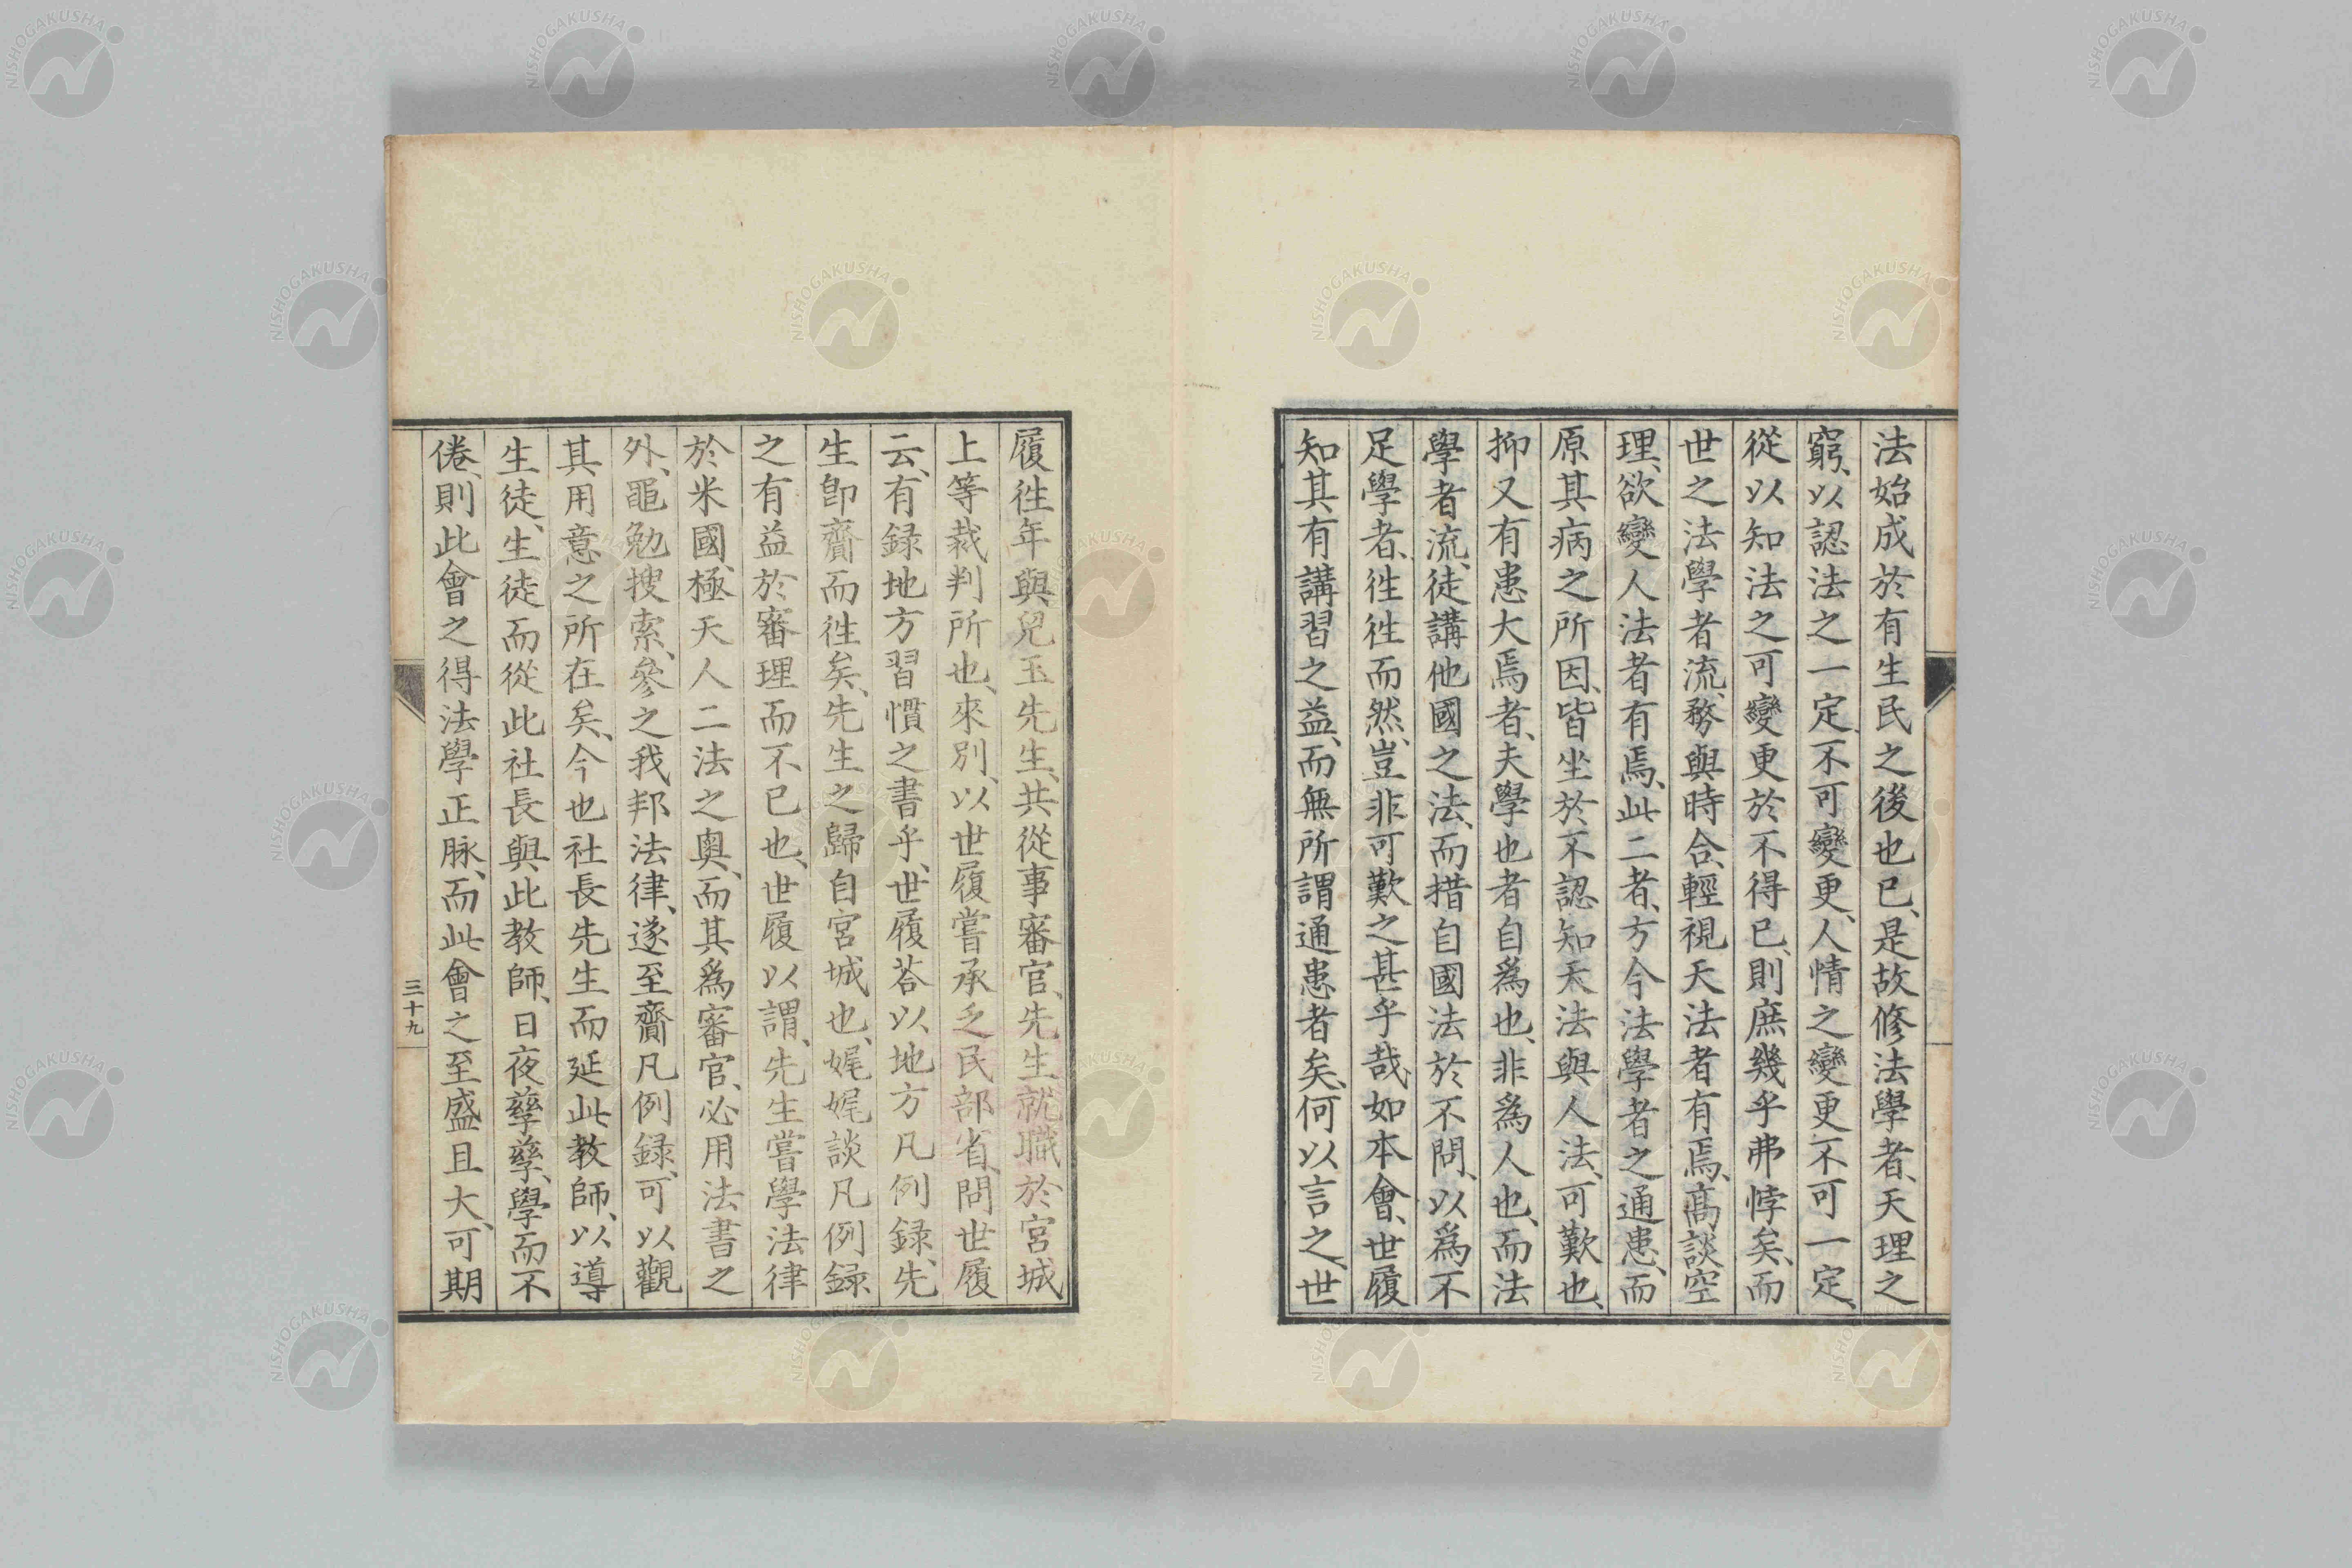 法始成於有生民之後也已、是故修法學者、天理之
窮、以認法之一定、不可變更、人情之變更、不可一定、
從以知法之可變更於不得已、則庶幾乎弗悖矣、而
世之法學者流、務與時合、輕視天法者有焉、高談空
理、欲變人法者有焉、此二者、方今法學者之通患、而
原其病之所因、皆坐於不認知天法與人法、可歎也、
抑又有患大焉者、夫學也者自爲也、非爲人也、而法
學者流、徒講他國之法、而措自國法於不問、以爲不
足學者、往往而然、豈非可歎之甚乎哉、如本會、世履
知其有講習之益、而無所謂通患者矣、何以言之、世
履往年與兒玉先生、共從事審官、先生就職於宮城
上等裁判所也、來別、以世履嘗承乏民部省、問世履
云、有録地方習慣之書乎、世履荅以地方凡例録、先
生卽齎而往矣、先生之歸自宮城也、娓娓談凡例録
之有益於審理而不已也、世履以謂、先生嘗學法律
於米國、極天人二法之奧、而其爲審官、必用法書之
外、黽勉搜索、參之我邦法律、遂至齎凡例録、可以觀
其用意之所在矣、今也社長先生而延此教師、以導
生徒、生徒而從此社長與此教師、日夜孳孳、學而不
倦、則此會之得法學正脉、而此會之至盛且大、可期
三十九
NISHOGAKUSHA